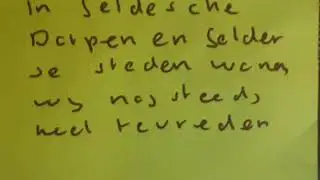 In Geldesche
Dorpen en Gelder
se steden wonen
wy nog steeds
heel tevreden